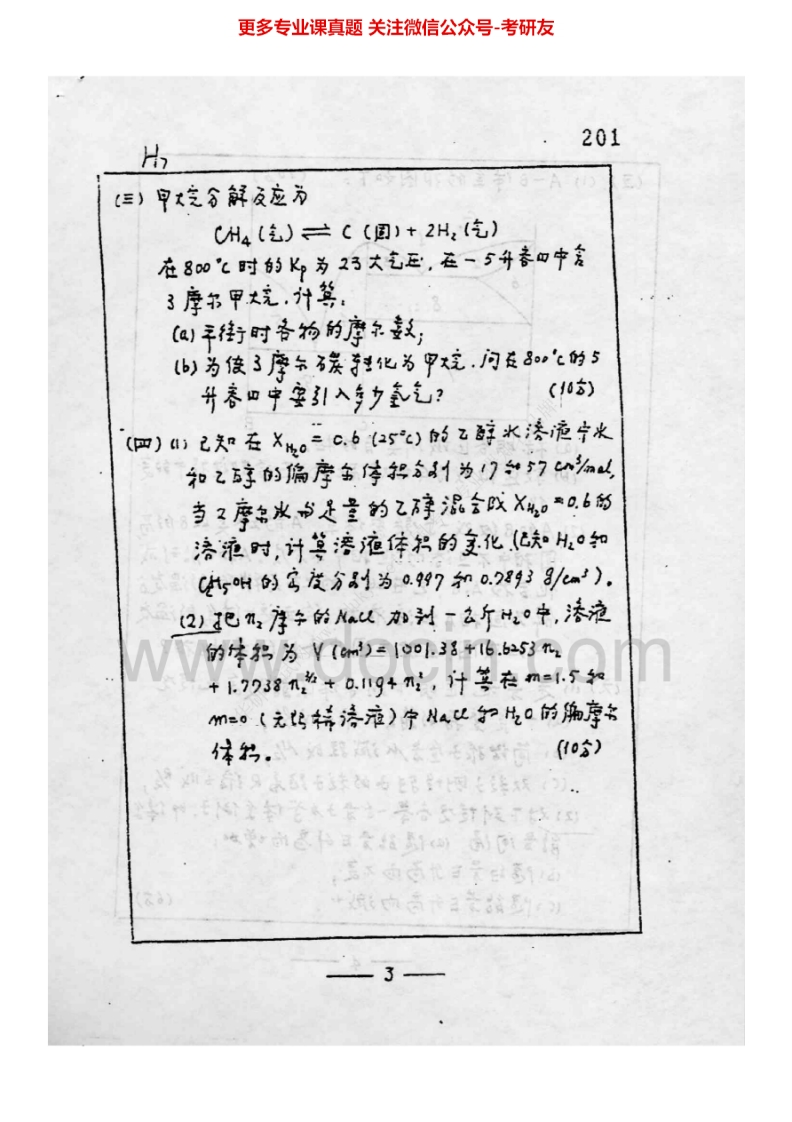 更多专业课真题 关注微信公众号-考研友
201
H₇
(三) 甲烷分解反应为
CH₄(气) ⇌ C(固) + 2H₂(气)
在800℃时的Kp为23大气压, 在一5升容四中含
3摩尔甲烷. 计算:
(a) 平衡时各物的摩尔数;
(b) 为使3摩尔碳转化为甲烷. 问在800℃的5
升容四中要引入多少氢气? (10分)
(四) (1) 已知在 X_H₂O = 0.6 (25℃) 的乙醇水溶液中水
和乙醇的偏摩尔体积分别为17和57 cm³/mol,
当2摩尔水与足量的乙醇混合成 X_H₂O = 0.6的
溶液时, 计算溶液体积的变化. (已知H₂O和
C₂H₅OH的密度分别为0.997和0.7893 g/cm³).
(2) 把n₂摩尔的NaCl加到一公斤H₂O中, 溶液
的体积为 V(cm³) = 1001.38 + 16.6253 n₂
+ 1.7738 n₂^3/2 + 0.1194 n₂², 计算在m=1.5和
m=0 (无限稀溶液) 中NaCl和H₂O的偏摩尔
体积. (10分)
www.docin.com
— 3 —